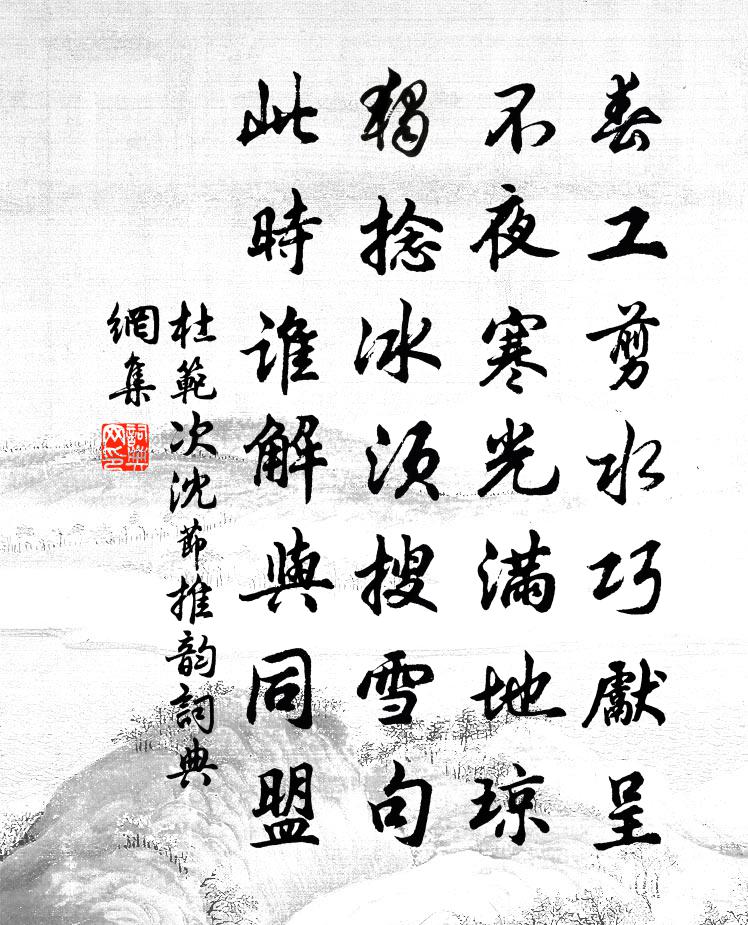 春工剪水巧獻呈
不夜寒光滿地琼
獨捻冰须搜雪句
此時谁解與同盟
杜範次沈節推韵詞典
網集